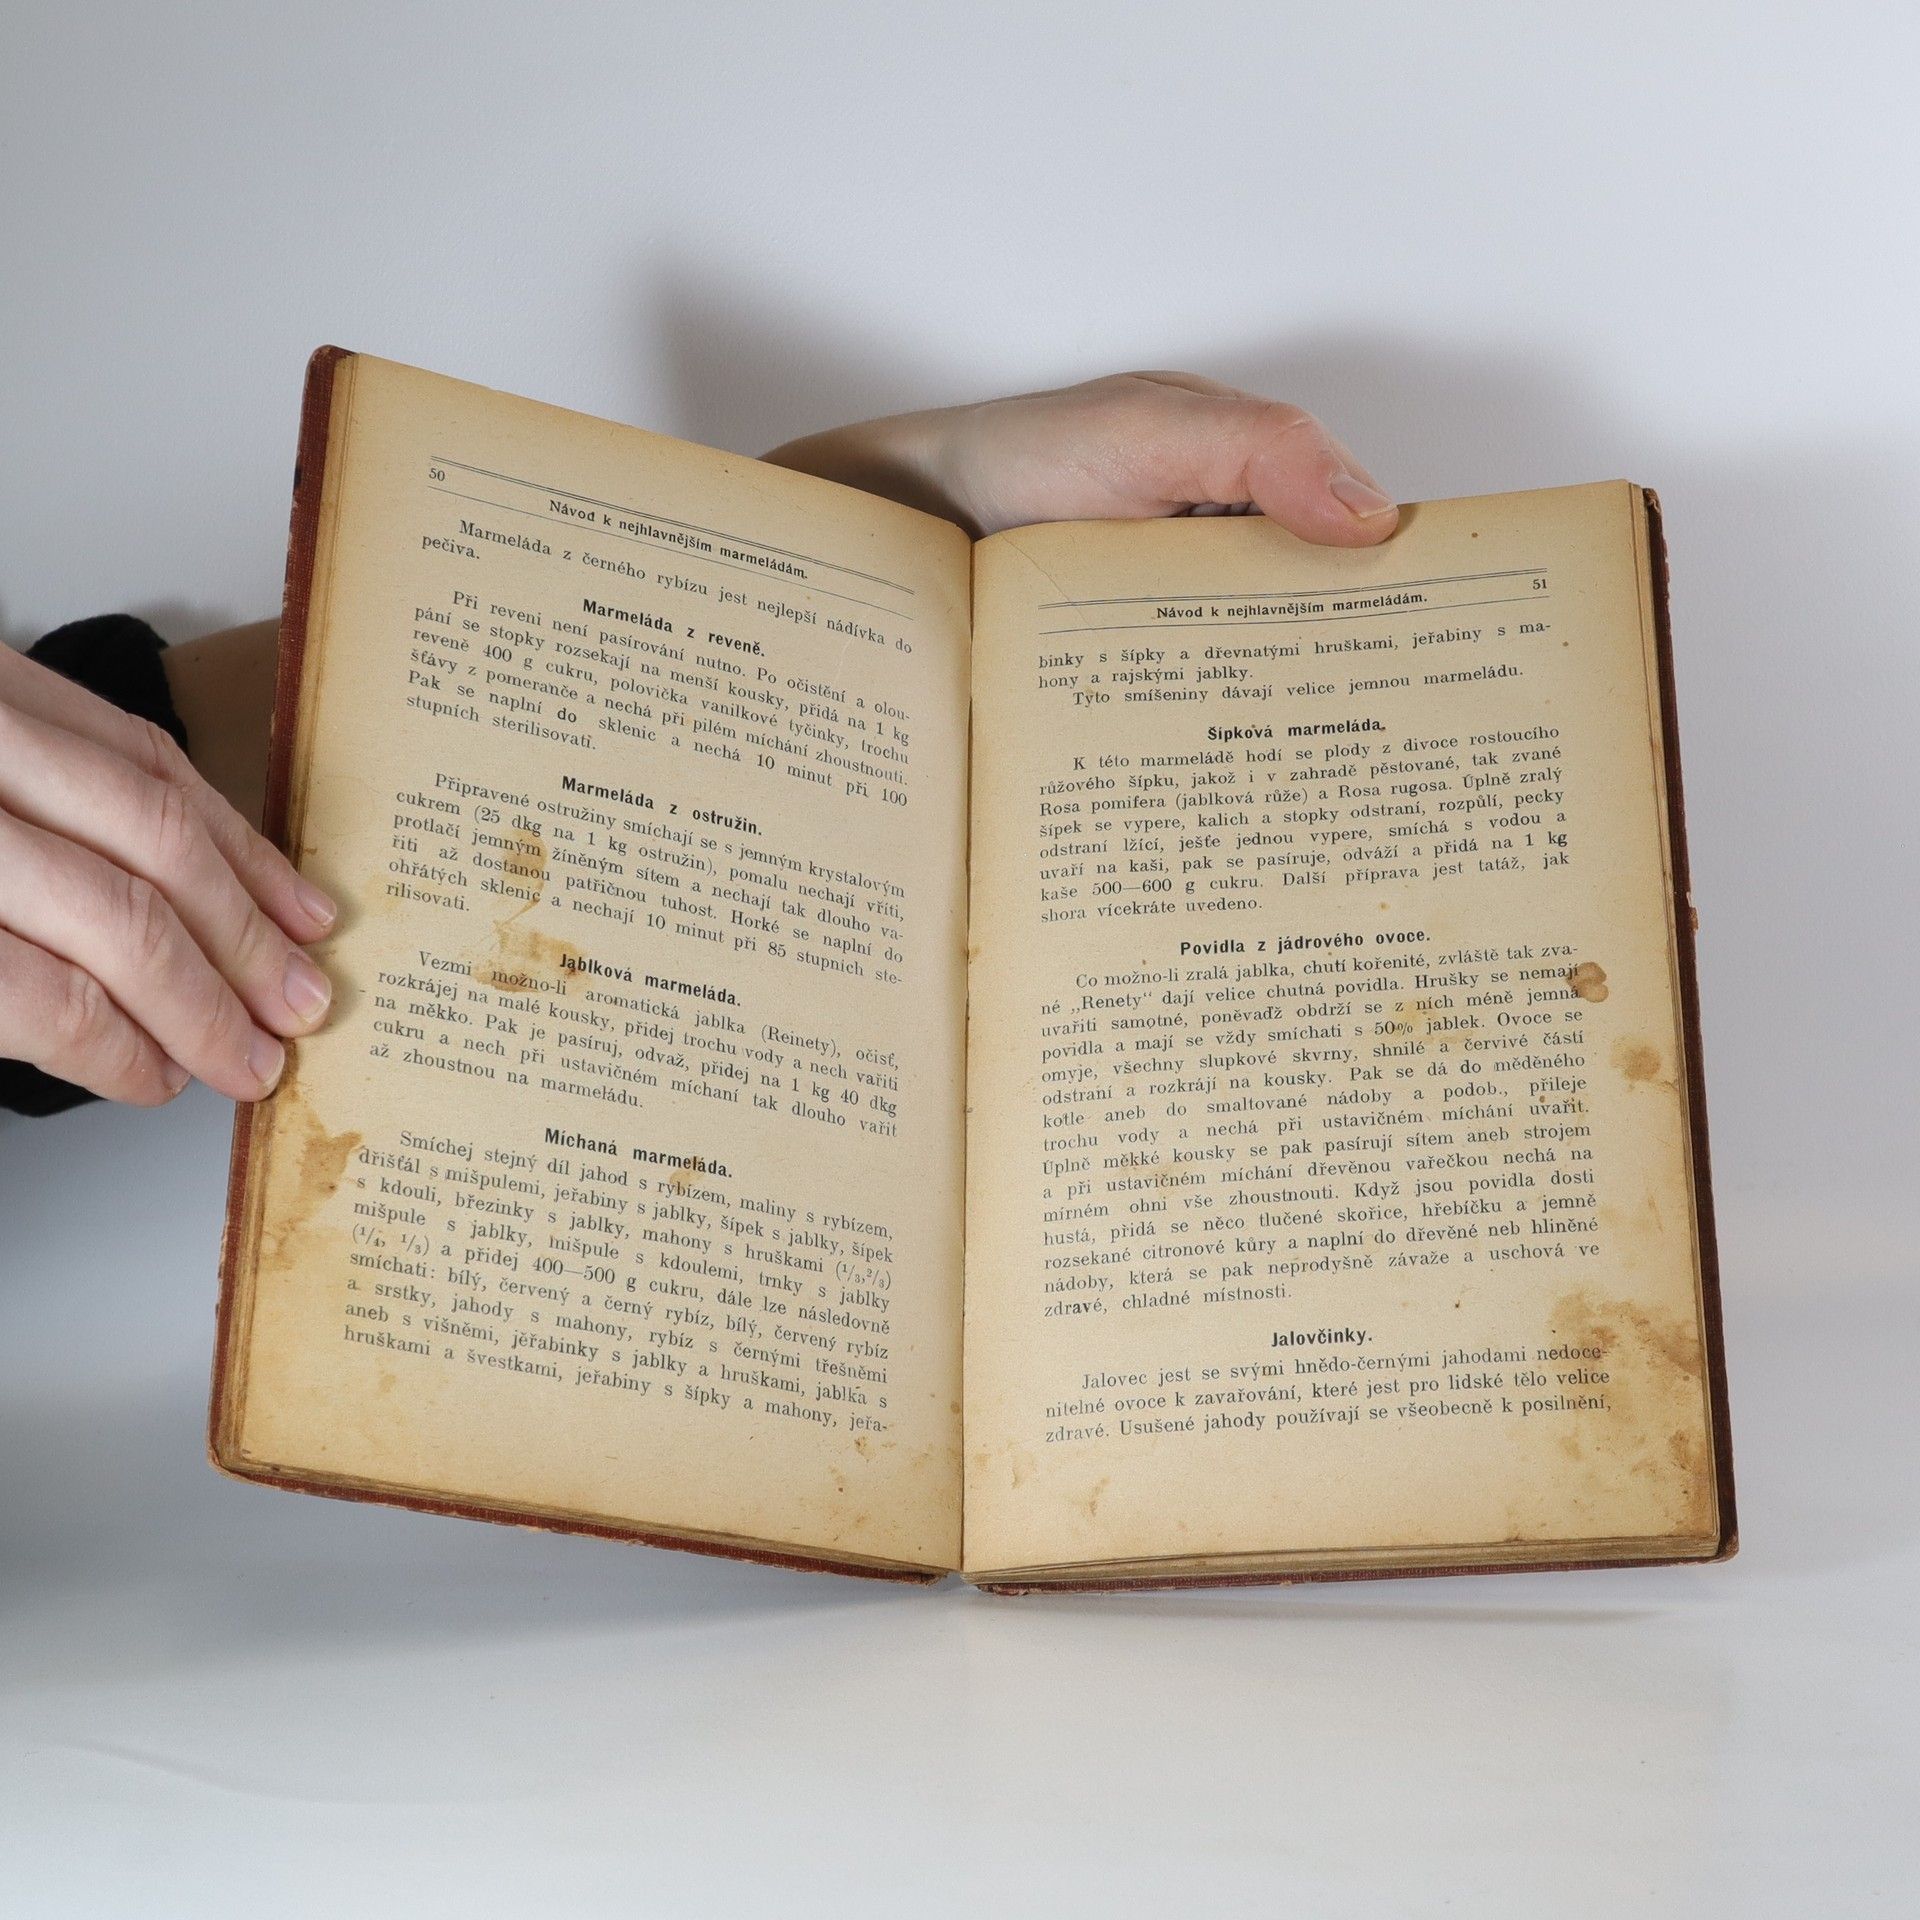 50
Návod k nejhlavnějším marmeládám.
Marmeláda z černého rybízu jest nejlepší nádívka do
pečiva.
Marmeláda z reveně.
Při reveni není pasírování nutno. Po očistění a olou-
pání se stopky rozsekají na menší kousky, přidá na 1 kg
reveně 400 g cukru, polovička vanilkové tyčinky, trochu
šťávy z pomeranče a nechá při pilém míchání zhoustnouti.
Pak se naplní do sklenic a nechá 10 minut při 100
stupních sterilisovati.
Marmeláda z ostružin.
Připravené ostružiny smíchají se s jemným krystalovým
cukrem (25 dkg na 1 kg ostružin), pomalu nechají vříti,
protlačí jemným žíněným sítem a nechají tak dlouho va-
řiti až dostanou patřičnou tuhost. Horké se naplní do
ohřátých sklenic a nechají 10 minut při 85 stupních ste-
rilisovati.
Jablková marmeláda.
Vezmi možno-li aromatická jablka (Reinety), očisť,
rozkrájej na malé kousky, přidej trochu vody a nech vařiti
na měkko. Pak je pasíruj, odvaž, přidej na 1 kg 40 dkg
cukru a nech při ustavičném míchaní tak dlouho vařit
až zhoustnou na marmeládu.
Míchaná marmeláda.
Smíchej stejný díl jahod s rybízem, maliny s rybízem,
dřišťál s mišpulemi, jeřabiny s jablky, šípek s jablky, šípek
s kdouli, březinky s jablky, mahony s hruškami (1/3,2/3)
mišpule s jablky, mišpule s kdoulemi, trnky s jablky
(1/4, 1/3) a přidej 400—500 g cukru, dále lze následovně
smíchati: bílý, červený a černý rybíz, bílý, červený rybíz
a srstky, jahody s mahony, rybíz s černými třešněmi
aneb s višněmi, jěřabinky s jablky a hruškami, jablka s
hruškami a švestkami, jeřabiny s šípky a mahony, jeřa-
51
Návod k nejhlavnějším marmeládám.
binky s šípky a dřevnatými hruškami, jeřabiny s ma-
hony a rajskými jablky.
Tyto smíšeniny dávají velice jemnou marmeládu.
Šípková marmeláda.
K této marmeládě hodí se plody z divoce rostoucího
růžového šípku, jakož i v zahradě pěstované, tak zvané
Rosa pomifera (jablková růže) a Rosa rugosa. Úplně zralý
šípek se vypere, kalich a stopky odstraní, rozpůlí, pecky
odstraní lžící, ješťe jednou vypere, smíchá s vodou a
uvaří na kaši, pak se pasíruje, odváží a přidá na 1 kg
kaše 500—600 g cukru. Další příprava jest tatáž, jak
shora vícekráte uvedeno.
Povidla z jádrového ovoce.
Co možno-li zralá jablka, chutí kořenité, zvláště tak zva-
né „Renety“ dají velice chutná povidla. Hrušky se nemají
uvařiti samotné, poněvadž obdrží se z nich méně jemná
povidla a mají se vždy smíchati s 50% jablek. Ovoce se
omyje, všechny slupkové skvrny, shnilé a červivé částí
odstraní a rozkrájí na kousky. Pak se dá do měděného
kotle aneb do smaltované nádoby a podob., přileje
trochu vody a nechá při ustavičném míchání uvařit.
Úplně měkké kousky se pak pasírují sítem aneb strojem
a při ustavičném míchání dřevěnou vařečkou nechá na
mírném ohni vše zhoustnouti. Když jsou povidla dosti
hustá, přidá se něco tlučené skořice, hřebíčku a jemně
rozsekané citronové kůry a naplní do dřevěné neb hliněné
nádoby, která se pak neprodyšně zaváže a uschová ve
zdravé, chladné místnosti.
Jalovčinky.
Jalovec jest se svými hnědo-černými jahodami nedoce-
nitelné ovoce k zavařování, které jest pro lidské tělo velice
zdravé. Usušené jahody používají se všeobecně k posilnění,